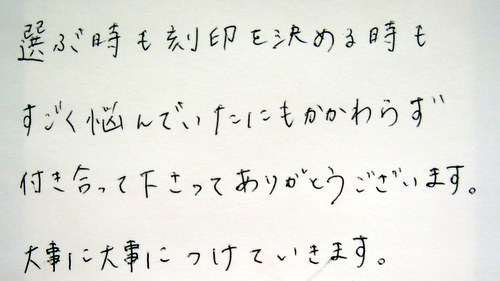 選ぶ時も刻印を決める時も
すごく悩んでいたにもかかわらず
付き合って下さってありがとうございます。
大事に大事につけていきます。